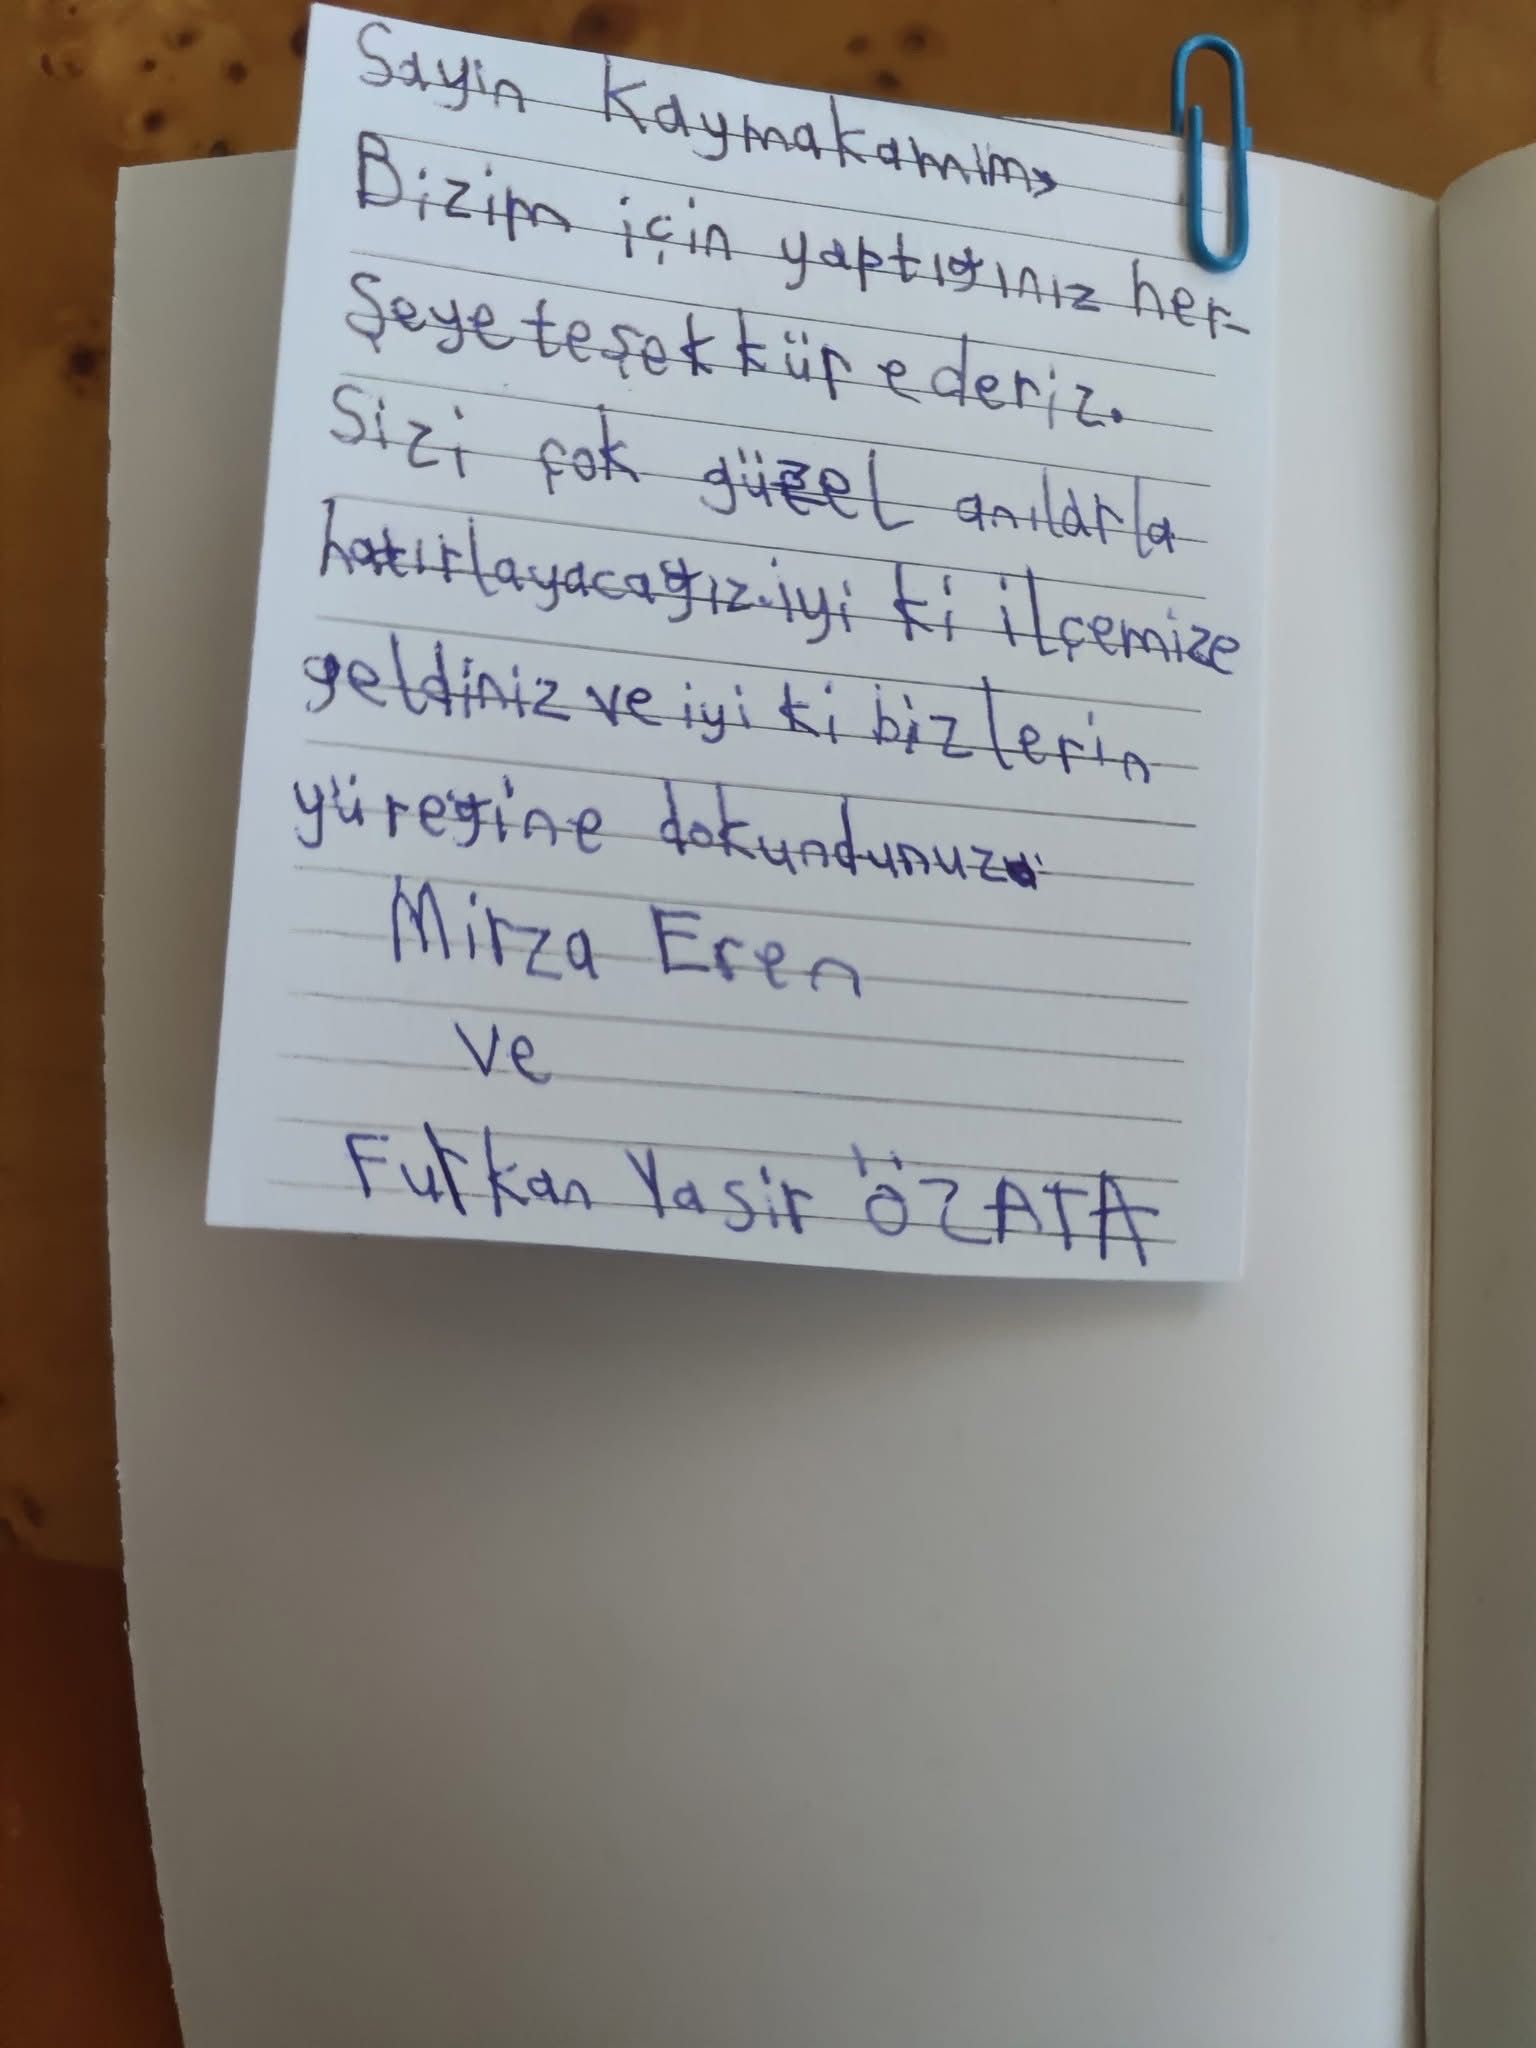 Sayın Kaymakamım,
Bizim için yaptığınız her-
şeye teşekkür ederiz.
Sizi çok güzel anılarla
hatırlayacağız.iyi ki ilçemize
geldiniz ve iyi ki bizlerin
yüreğine dokundunuz.
Mirza Eren
ve
Furkan Yasir ÖZATA